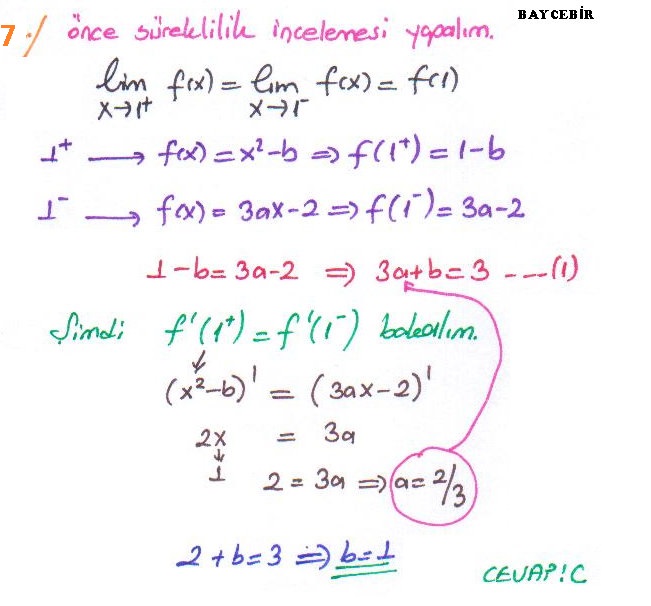 BAYCEBİR
7·/ önce süreklilik incelemesi yapalım.
lim f(x) = lim f(x) = f(1)
x→1⁺ x→1⁻
1⁺ ⟶ f(x) = x²-b ⇒ f(1⁺) = 1-b
1⁻ ⟶ f(x) = 3ax-2 ⇒ f(1⁻) = 3a-2
1-b = 3a-2 ⇒ 3a+b = 3 ----(1)
Şimdi f'(1⁺) = f'(1⁻) bakalım.
↓
(x²-b)' = (3ax-2)'
2x = 3a
↓
1 2 = 3a ⇒ a = 2/3
2+b=3 ⇒ b=1
CEVAP: C